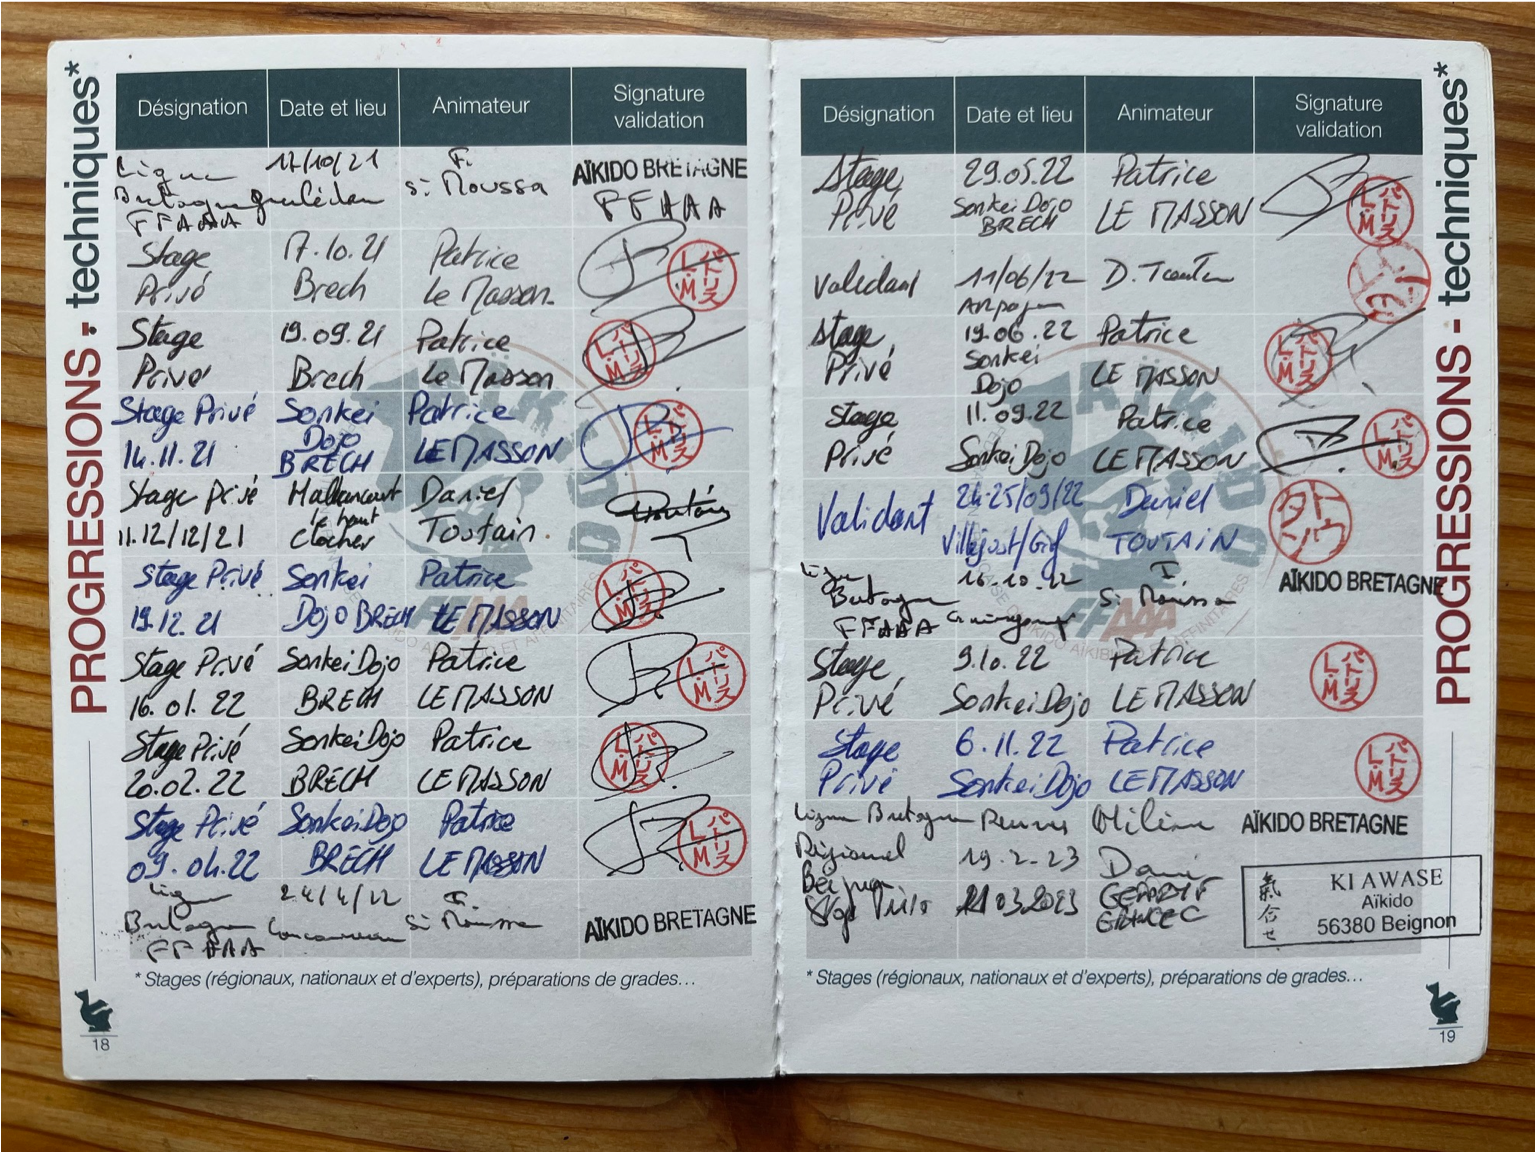 PROGRESSIONS - techniques*
Désignation Date et lieu Animateur Signature validation
Ligue 17/10/21
Bretagne Si Moussa AÏKIDO BRETAGNE
FFAAA FFAAA
Stage 17.10.21 Patrice
Privé Brech Le Masson
パトリス L.M
Stage 19.09.21 Patrice
Privé Brech Le Masson
パトリス L.M
Stage Privé Sonkei Patrice
14.11.21 Dojo BRECH LE MASSON
パトリス L.M
Stage Privé Daniel
11.12/12/21 le haut clocher Toutain
Stage Privé Sonkei Patrice
19.12.21 Dojo BRECH LE MASSON
パトリス L.M
Stage Privé Sonkei Dojo Patrice
16.01.22 BRECH LE MASSON
パトリス L.M
Stage Privé Sonkei Dojo Patrice
20.02.22 BRECH LE MASSON
パトリス L.M
Stage Privé Sonkei Dojo Patrice
09.04.22 BRECH LE MASSON
パトリス L.M
Ligue 24/4/22
Bretagne Concarneau Si Moussa AÏKIDO BRETAGNE
FFAAA
* Stages (régionaux, nationaux et d'experts), préparations de grades…
18
Désignation Date et lieu Animateur Signature validation
Stage 29.05.22 Patrice
Privé Sonkei Dojo BRECH LE MASSON
パトリス L.M
Validant 11/06/22 D. Toutain
Stage 19.06.22 Patrice
Privé Sonkei Dojo LE MASSON
パトリス L.M
Stage 11.09.22 Patrice
Privé Sonkei Dojo LE MASSON
パトリス L.M
Validant 24-25/09/22 Daniel
Villejust/Gif TOUTAIN
Ligue 16-10-22
Bretagne Si Moussa AÏKIDO BRETAGNE
FFAAA
Stage 9.10.22 Patrice
Privé Sonkei Dojo LE MASSON
パトリス L.M
Stage 6.11.22 Patrice
Privé Sonkei Dojo LE MASSON
パトリス L.M
Ligue Bretagne Rennes Hélène AÏKIDO BRETAGNE
Régional 19-2-23
Beignon 03.2023
氣合せ
KI AWASE
Aïkido
56380 Beignon
* Stages (régionaux, nationaux et d'experts), préparations de grades…
PROGRESSIONS - techniques*
19